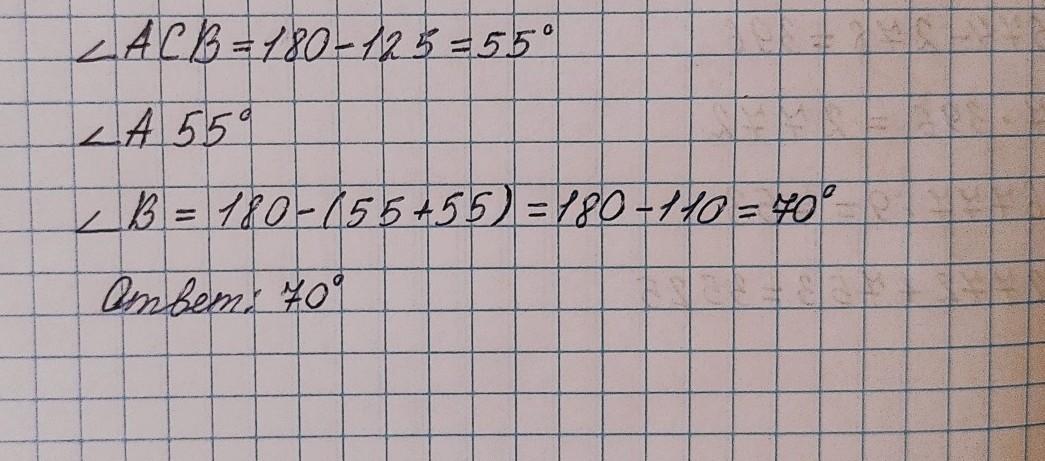 ∠ACB = 180 - 125 = 55°
∠A 55°
∠B = 180 - (55 + 55) = 180 - 110 = 70°
Ответ: 70°